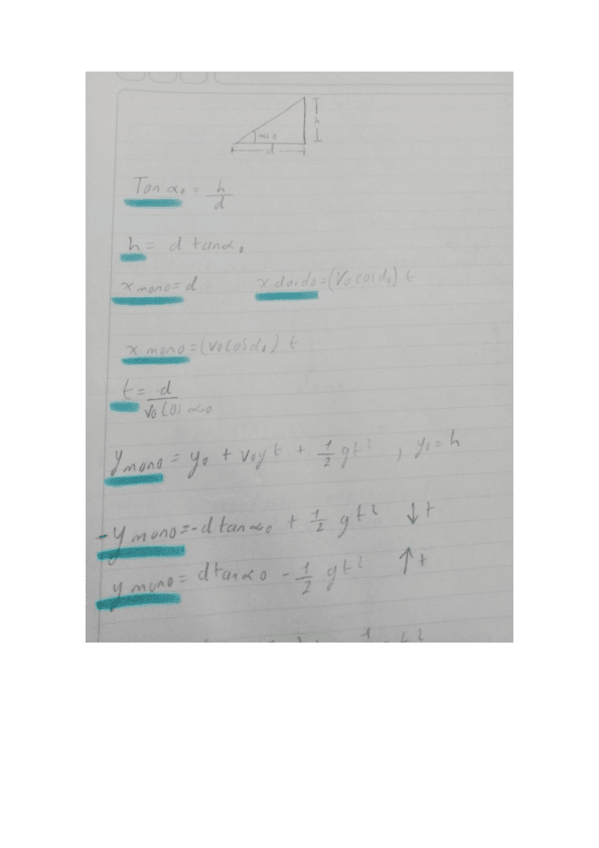 h
α0
d
Tan α₀ = h/d
h = d tanα₀
x mono = d x dardo = (V₀ cosα₀) t
x mono = (v₀ cosα₀) t
t = d / v₀ cos α₀
y mono = y₀ + v₀y t + 1/2 gt² , y₀ = h
-y mono = -d tanα₀ + 1/2 gt² ↓+
y mono = d tanα₀ - 1/2 gt² ↑+